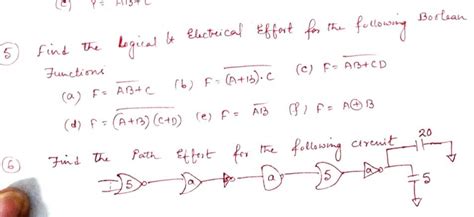 (e) Y = AB+C
(5) Find the Logical & Electrical Effort for the following Boolean
Functions
(a) F = \overline{AB+C} (b) F = \overline{(A+B)·C} (c) F = \overline{AB+CD}
(d) F = \overline{(A+B)(C+D)} (e) F = \overline{AB} (f) F = A⊕B
(6) Find the Path Effort for the following circuit
20
5 a a 5 a 5